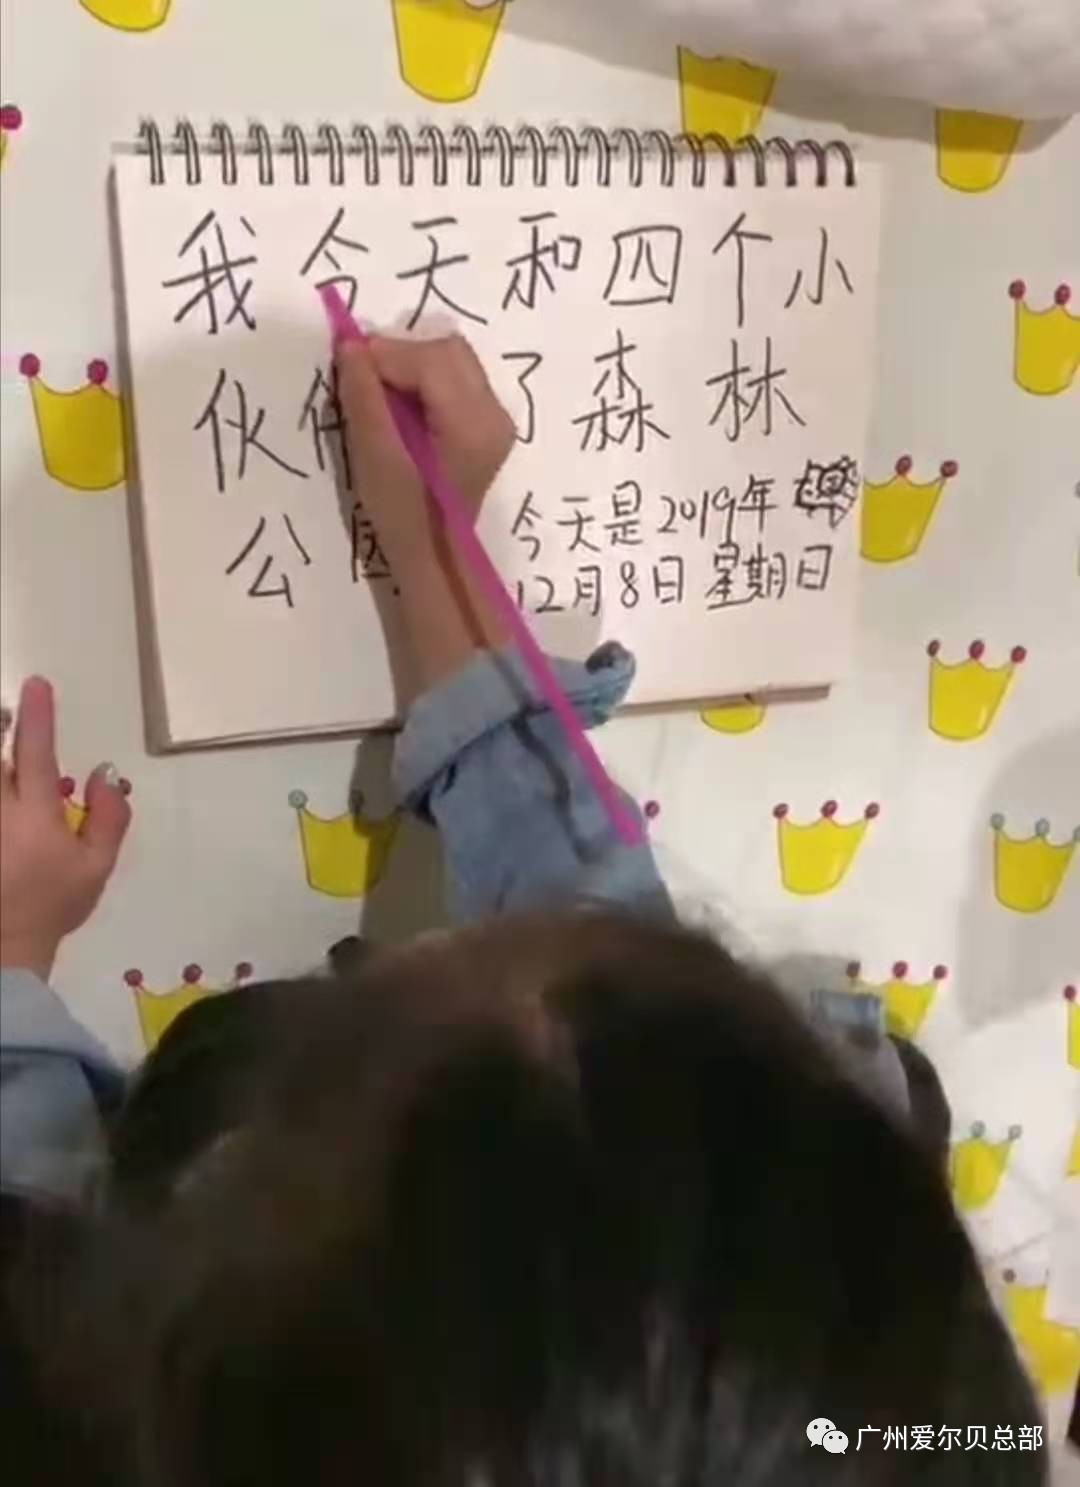 我今天和四个小
伙伴 了森林
公园
今天是2019年
12月8日星期日
广州爱尔贝总部